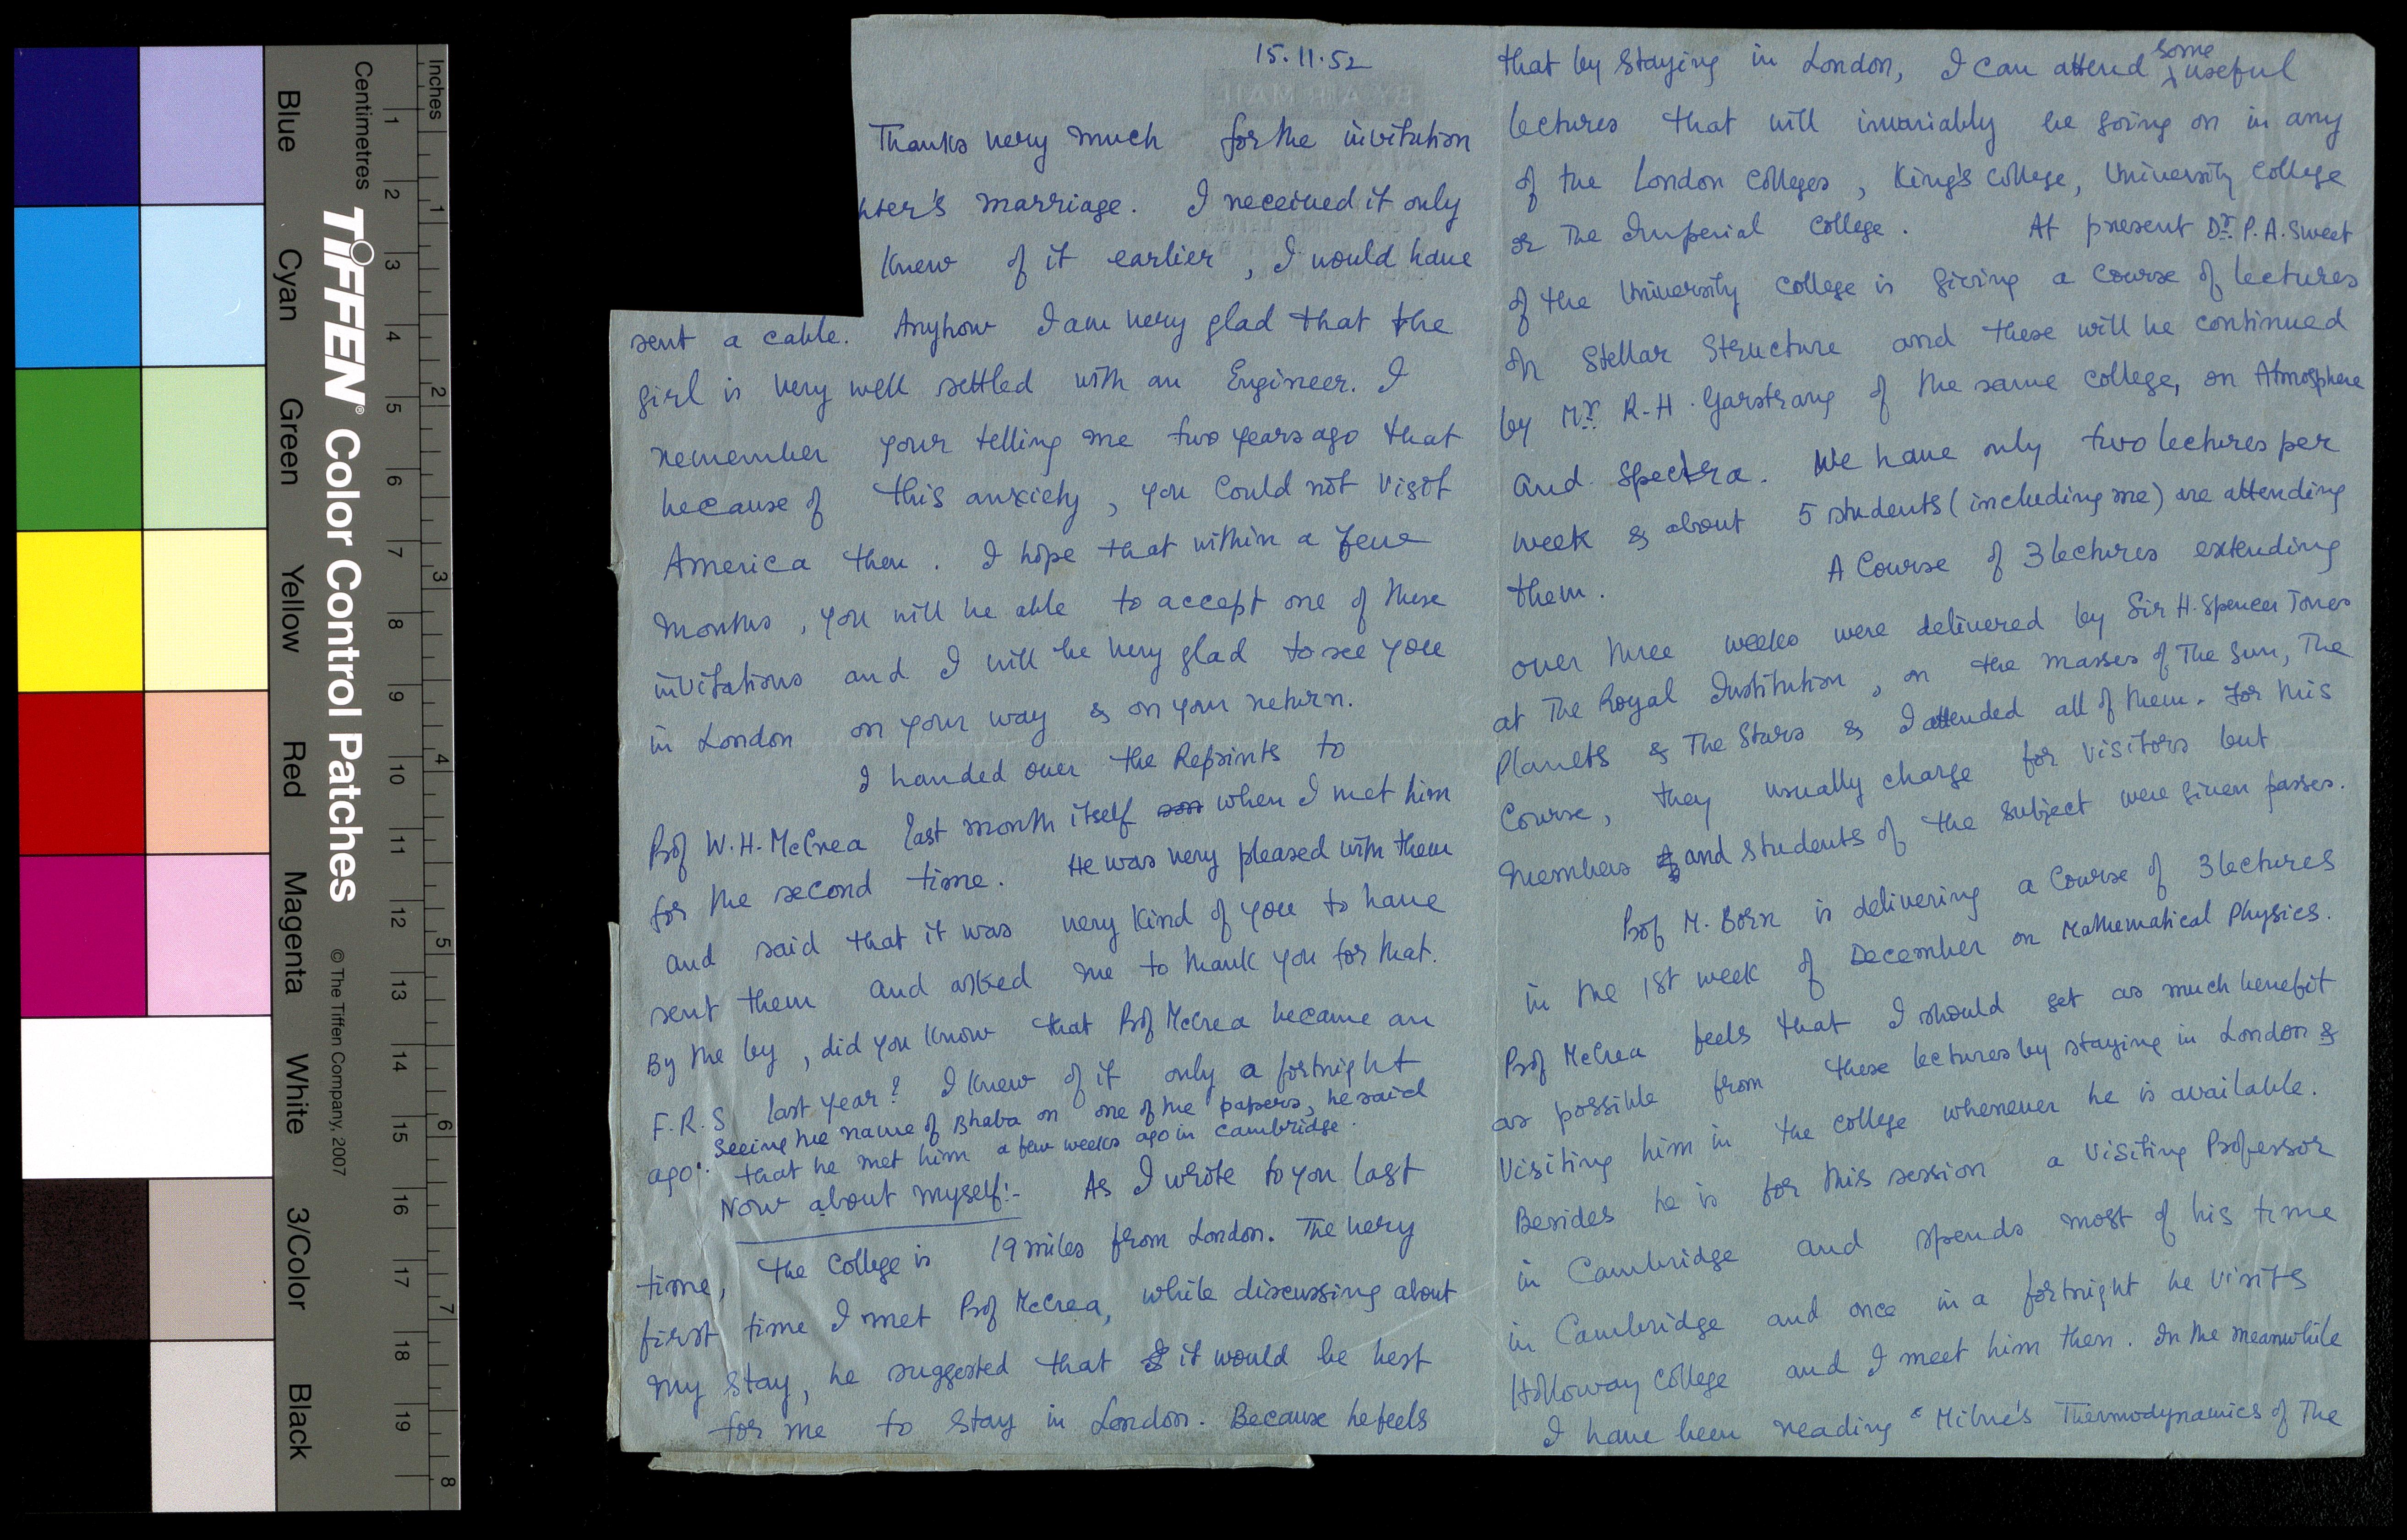 Inches
Centimetres
TIFFEN® Color Control Patches
© The Tiffen Company, 2007
Blue
Cyan
Green
Yellow
Red
Magenta
White
3/Color
Black
1 2 3 4 5 6 7 8 9 10 11 12 13 14 15 16 17 18 19
1 2 3 4 5 6 7 8
15.11.52
BY AIR MAIL
Thanks very much for the invitation
hter's marriage. I received it only
Knew of it earlier, I would have
sent a cable. Anyhow I am very glad that the
girl is very well settled with an Engineer. I
remember your telling me two years ago that
because of this anxiety, you could not visit
America then. I hope that within a few
months, you will be able to accept one of these
invitations and I will be very glad to see you
in London on your way & on your return.
I handed over the Reprints to
Prof W.H. McCrea last month itself when I met him
for the second time. He was very pleased with them
and said that it was very kind of you to have
sent them and asked me to thank you for that.
By the by, did you know that Prof McCrea became an
F.R.S last year? I knew of it only a fortnight
ago. Seeing the name of Bhaba on one of the papers, he said
that he met him a few weeks ago in Cambridge.
Now about myself:- As I wrote to you last
time, the College is 19 miles from London. The very
first time I met Prof McCrea, while discussing about
my stay, he suggested that it would be best
for me to stay in London. Because he feels
that by staying in London, I can attend some useful
lectures that will invariably be going on in any
of the London Colleges, King's College, University College
or The Imperial College. At present Dr. P.A. Sweet
of the University College is giving a course of lectures
on Stellar Structure and these will be continued
by Mr. R-H. Garstrang of the same college, on Atmosphere
and Spectra. We have only two lectures per
week & about 5 students (including me) are attending
them. A Course of 3 lectures extending
over three weeks were delivered by Sir H. Spencer Jones
at The Royal Institution, on the masses of The Sun, The
Planets & The Stars & I attended all of them. For this
Course, they usually charge for visitors but
members and students of the subject were given passes.
Prof M. Born is delivering a Course of 3 lectures
in the 1st week of December on Mathematical Physics.
Prof McCrea feels that I should get as much benefit
as possible from these lectures by staying in London &
visiting him in the college whenever he is available.
Besides he is for this session a Visiting Professor
in Cambridge and spends most of his time
in Cambridge and once in a fortnight he visits
Holloway College and I meet him then. In the meanwhile
I have been reading "Milne's Thermodynamics of The